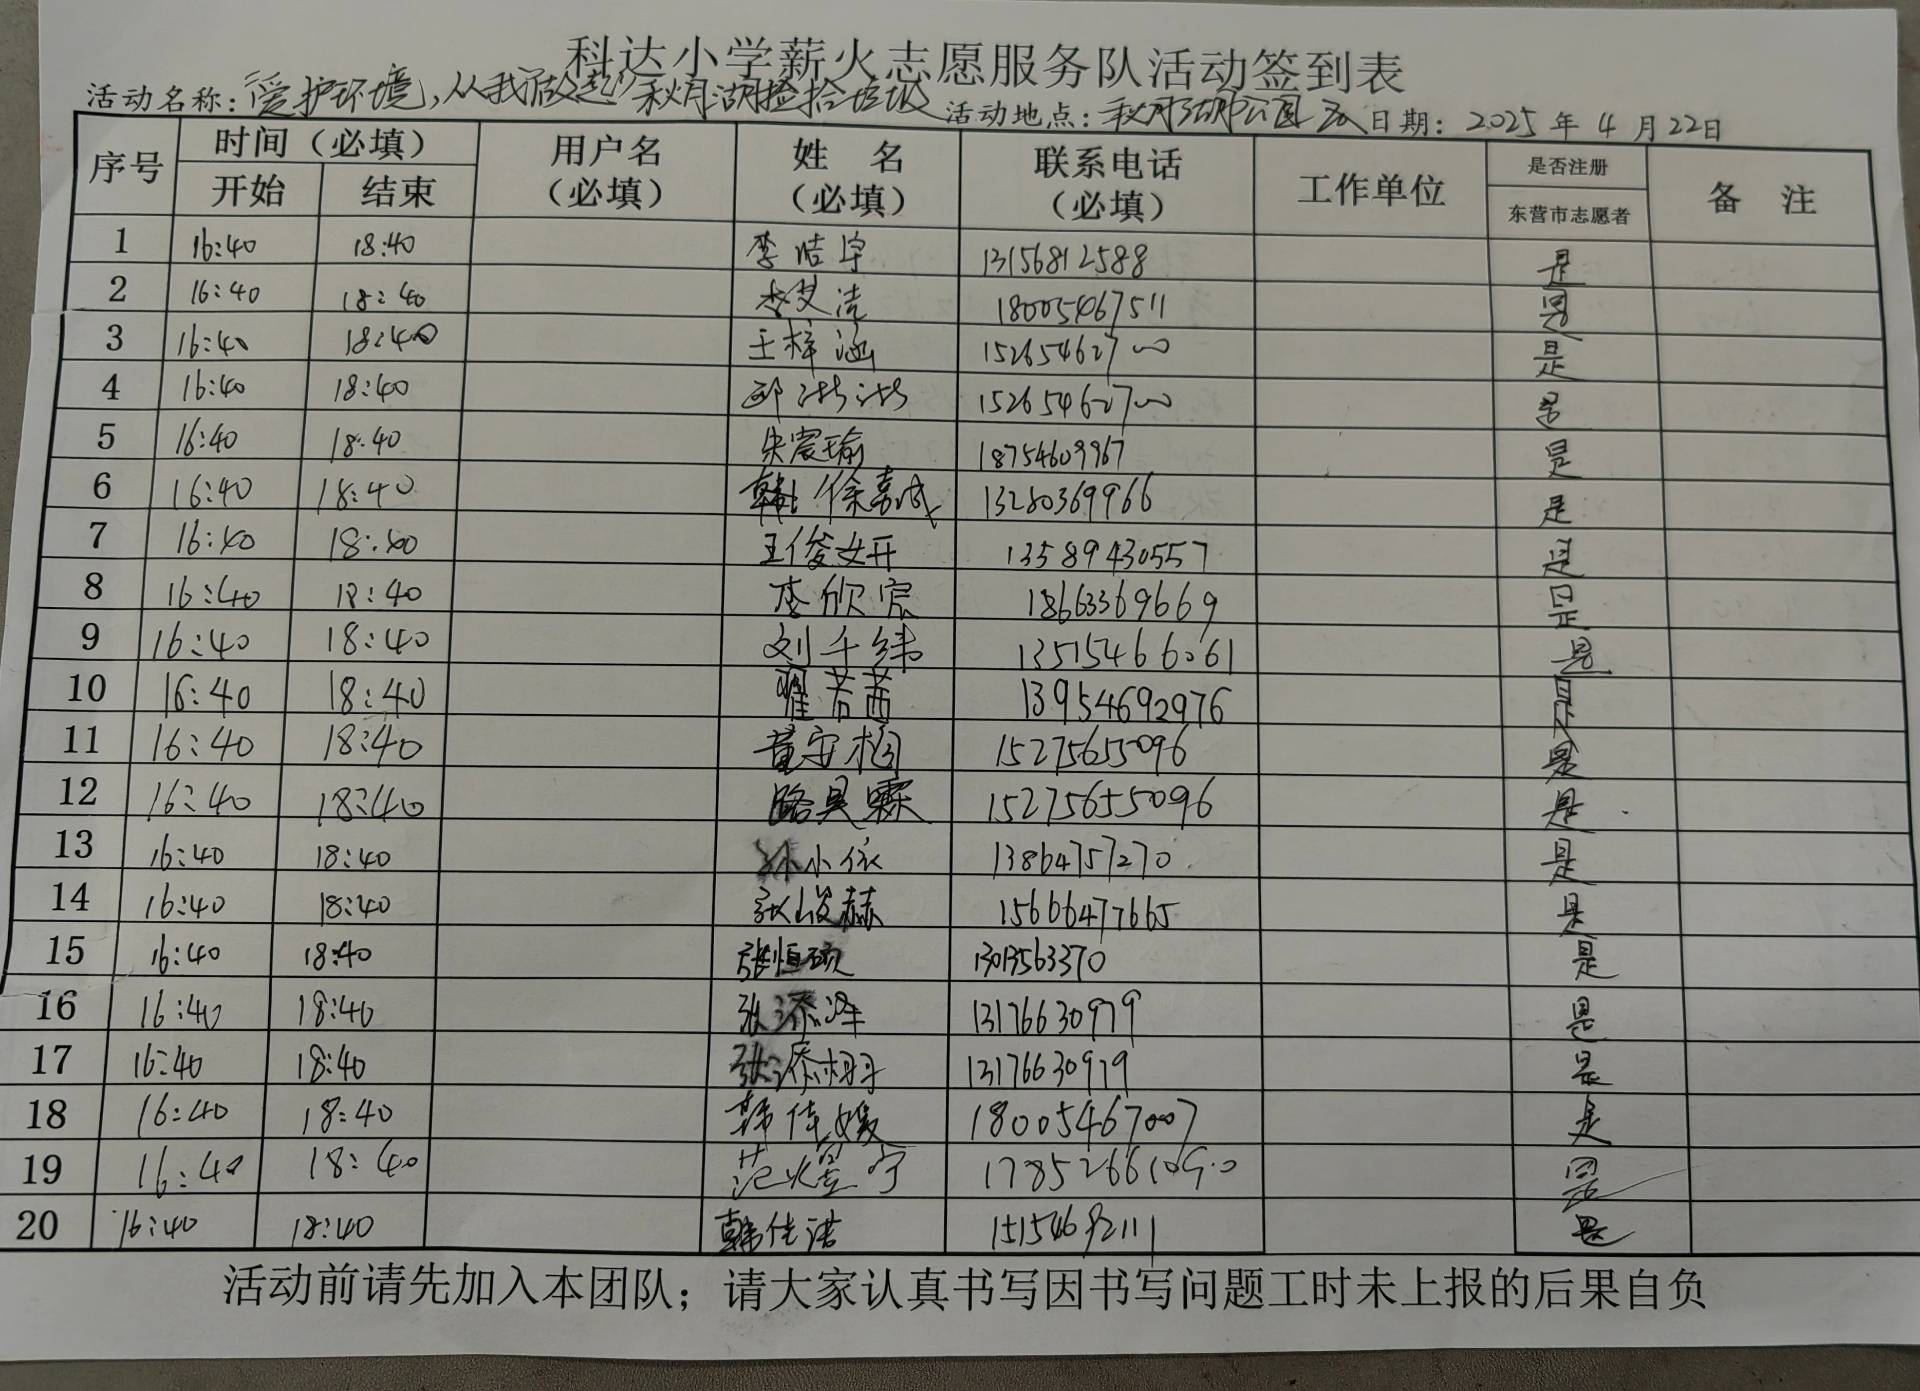 科达小学薪火志愿服务队活动签到表
活动名称：“爱护环境，从我做起”秋月湖捡拾垃圾 活动地点：秋月湖公园 日期：2025年4月22日
序号 时间（必填） 用户名（必填） 姓 名（必填） 联系电话（必填） 工作单位 是否注册 备 注
开始 结束 东营市志愿者
1 16:40 18:40 李浩宇 13156812588 是
2 16:40 18:40 李艾洁 18005467511 是
3 16:40 18:40 王梓涵 15265462700 是
4 16:40 18:40 邱湉湉 15265462700 是
5 16:40 18:40 朱宸瑜 18754609967 是
6 16:40 18:40 徐嘉成 13280369966 是
7 16:40 18:40 王俊妍 13589430557 是
8 16:40 18:40 李欣宸 18663369669 是
9 16:40 18:40 刘千纬 13515466061 是
10 16:40 18:40 翟若茜 13954692976 是
11 16:40 18:40 董安桐 15275655096 是
12 16:40 18:40 路昊霖 15275655096 是
13 16:40 18:40 孙小依 13864757270 是
14 16:40 18:40 张峻赫 15666477665 是
15 16:40 18:40 张恒硕 13013563370 是
16 16:40 18:40 张添泽 13176630979 是
17 16:40 18:40 张添翔 13176630979 是
18 16:40 18:40 韩佳媛 18005467007 是
19 16:40 18:40 范煜宁 是
20 16:40 18:40 韩佳诺 15154692111 是
活动前请先加入本团队；请大家认真书写因书写问题工时未上报的后果自负